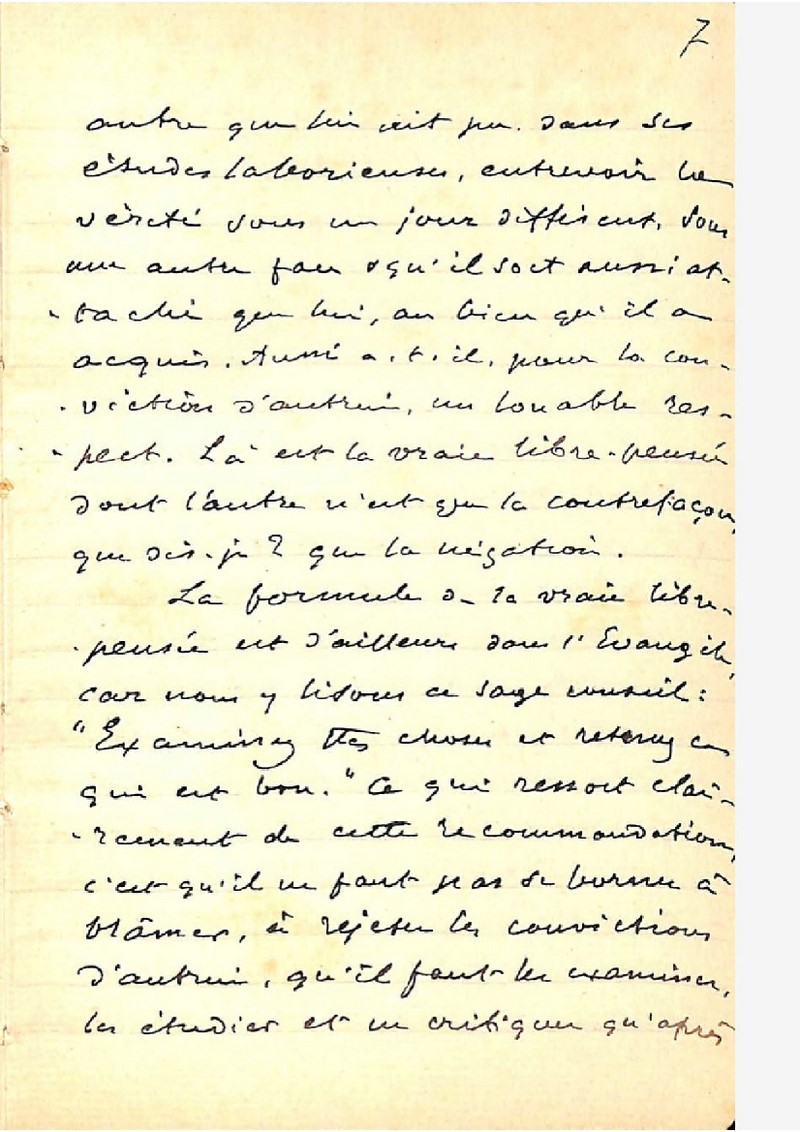 7
autre que lui ait pu. dans ses
études laborieuses, entrevoir la
vérité sous un jour différent, sous
une autre face & qu'il soit aussi at-
-taché que lui, au bien qu'il a
acquis. Aussi a.t.il, pour la con-
-viction d'autrui, un louable res-
-pect. Là est la vraie libre-pensée
dont l'autre n'est que la contrefaçon,
que dis-je ? que la négation.
La formule de la vraie libre-
-pensée est d'ailleurs dans l'Evangile,
car nous y lisons ce sage conseil :
"Examinez ttes choses et retenez ce
qui est bon." Ce qui ressort clai-
-rement de cette recommandation,
c'est qu'il ne faut pas se borner à
blâmer, à rejeter les convictions
d'autrui, qu'il faut les examiner,
les étudier et ne critiquer qu'après